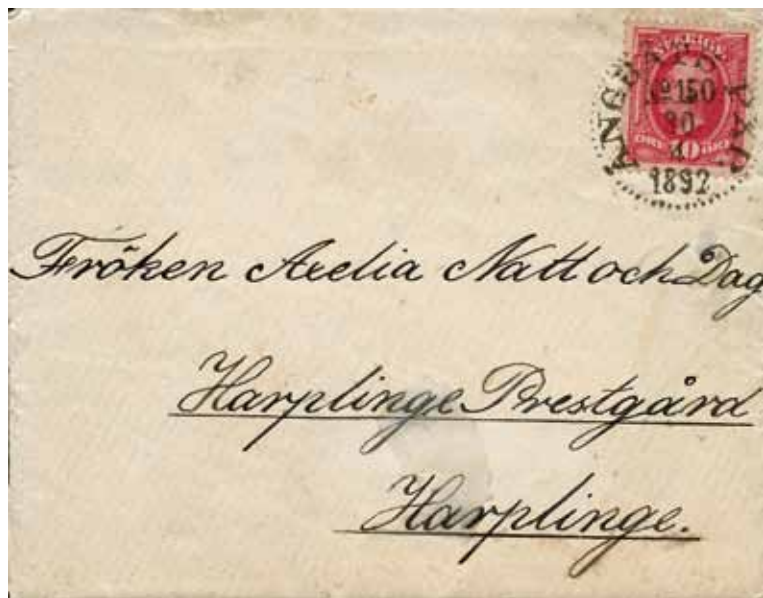 SVERIGE
ÅNGBÅTS PXP
No 150
30
4
1892
ÖRE 10 ÖRE
Fröken Aelia Natt och Dag
Harplinge Prestgård
Harplinge.